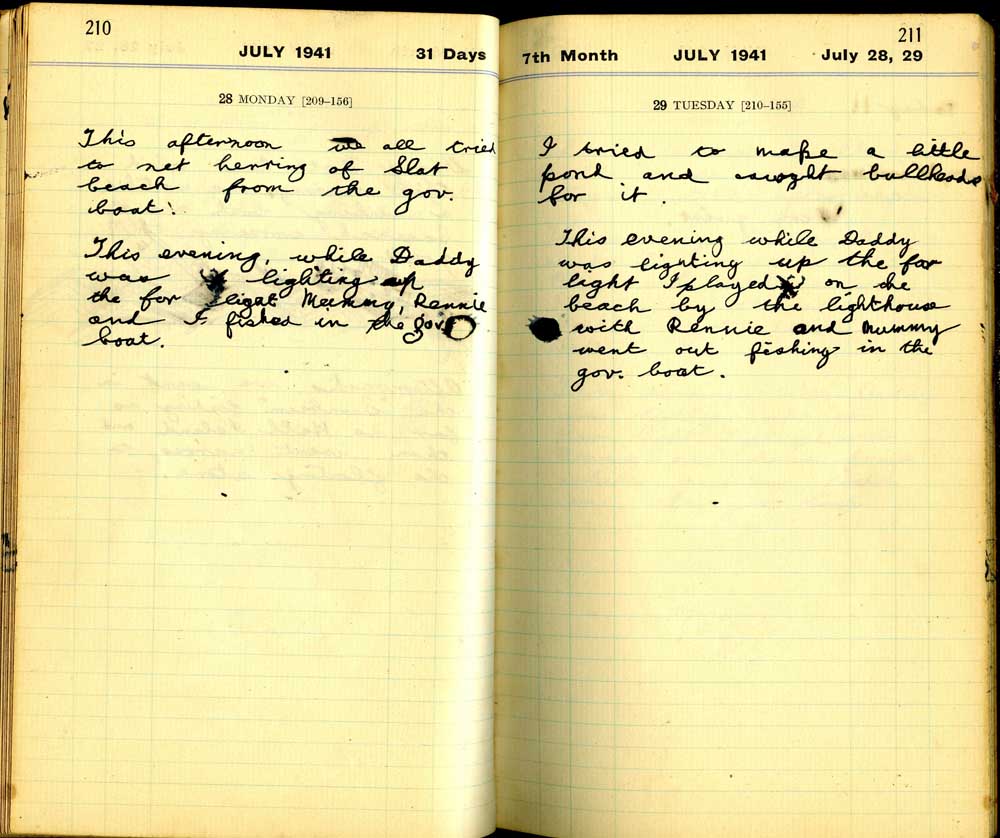 210
JULY 1941 31 Days
28 MONDAY [209–156]
This afternoon we all tried
to net herring of Slat
beach from the gov.
boat.
This evening, while Daddy
was lighting up
the for light Mummy, Rennie
and I fished in the gov.
boat.
211
7th Month JULY 1941 July 28, 29
29 TUESDAY [210–155]
I tried to make a little
pond and caught bullheads
for it.
This evening while Daddy
was lighting up the for
light I played on the
beach by the lighthouse
with Rennie and Mummy
went out fishing in the
gov. boat.